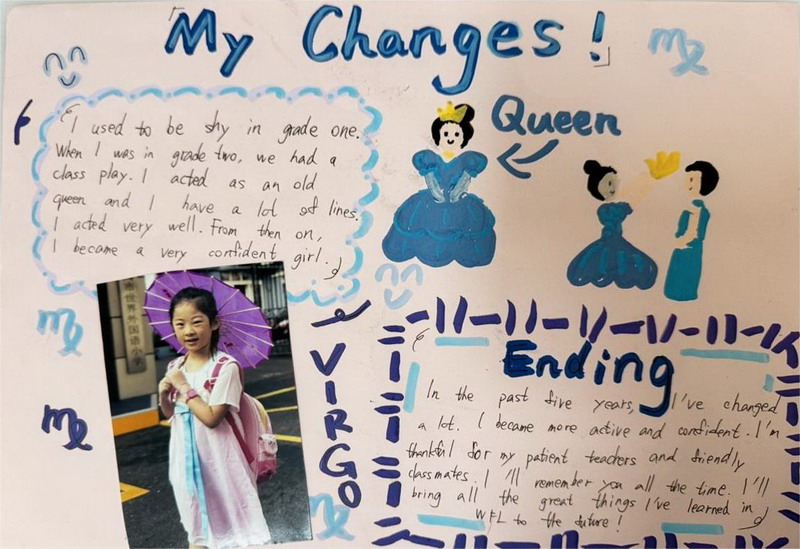 My Changes!
I used to be shy in grade one.
When I was in grade two, we had a
class play. I acted as an old
queen and I have a lot of lines.
I acted very well. From then on,
I became a very confident girl.
Queen
市世界外国语小学
VIRGO
Ending
In the past five years, I've changed
a lot. I became more active and confident. I'm
thankful for my patient teachers and friendly
classmates. I'll remember you all the time. I'll
bring all the great things I've learned in
WFL to the future!